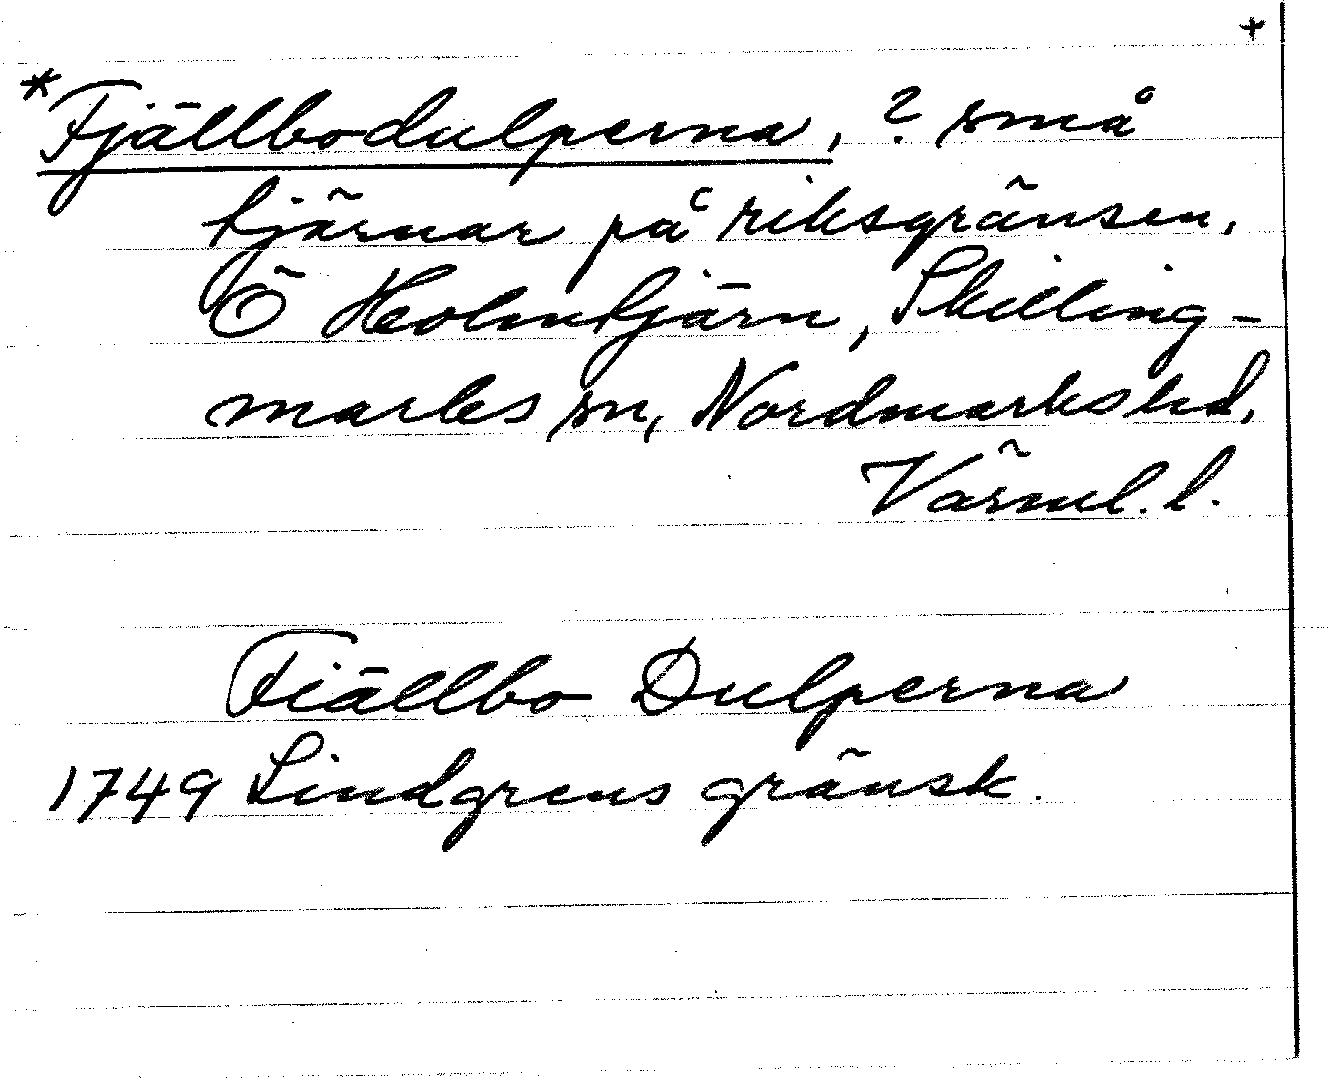 +
*Fjällbodulperna, ? små
tjärnar på riksgränsen,
Ö Holmtjärn, Skilling-
marks sn, Nordmarks hd,
Värml. l.
Fiällbo Dulperna
1749 Lindgrens gränsk.